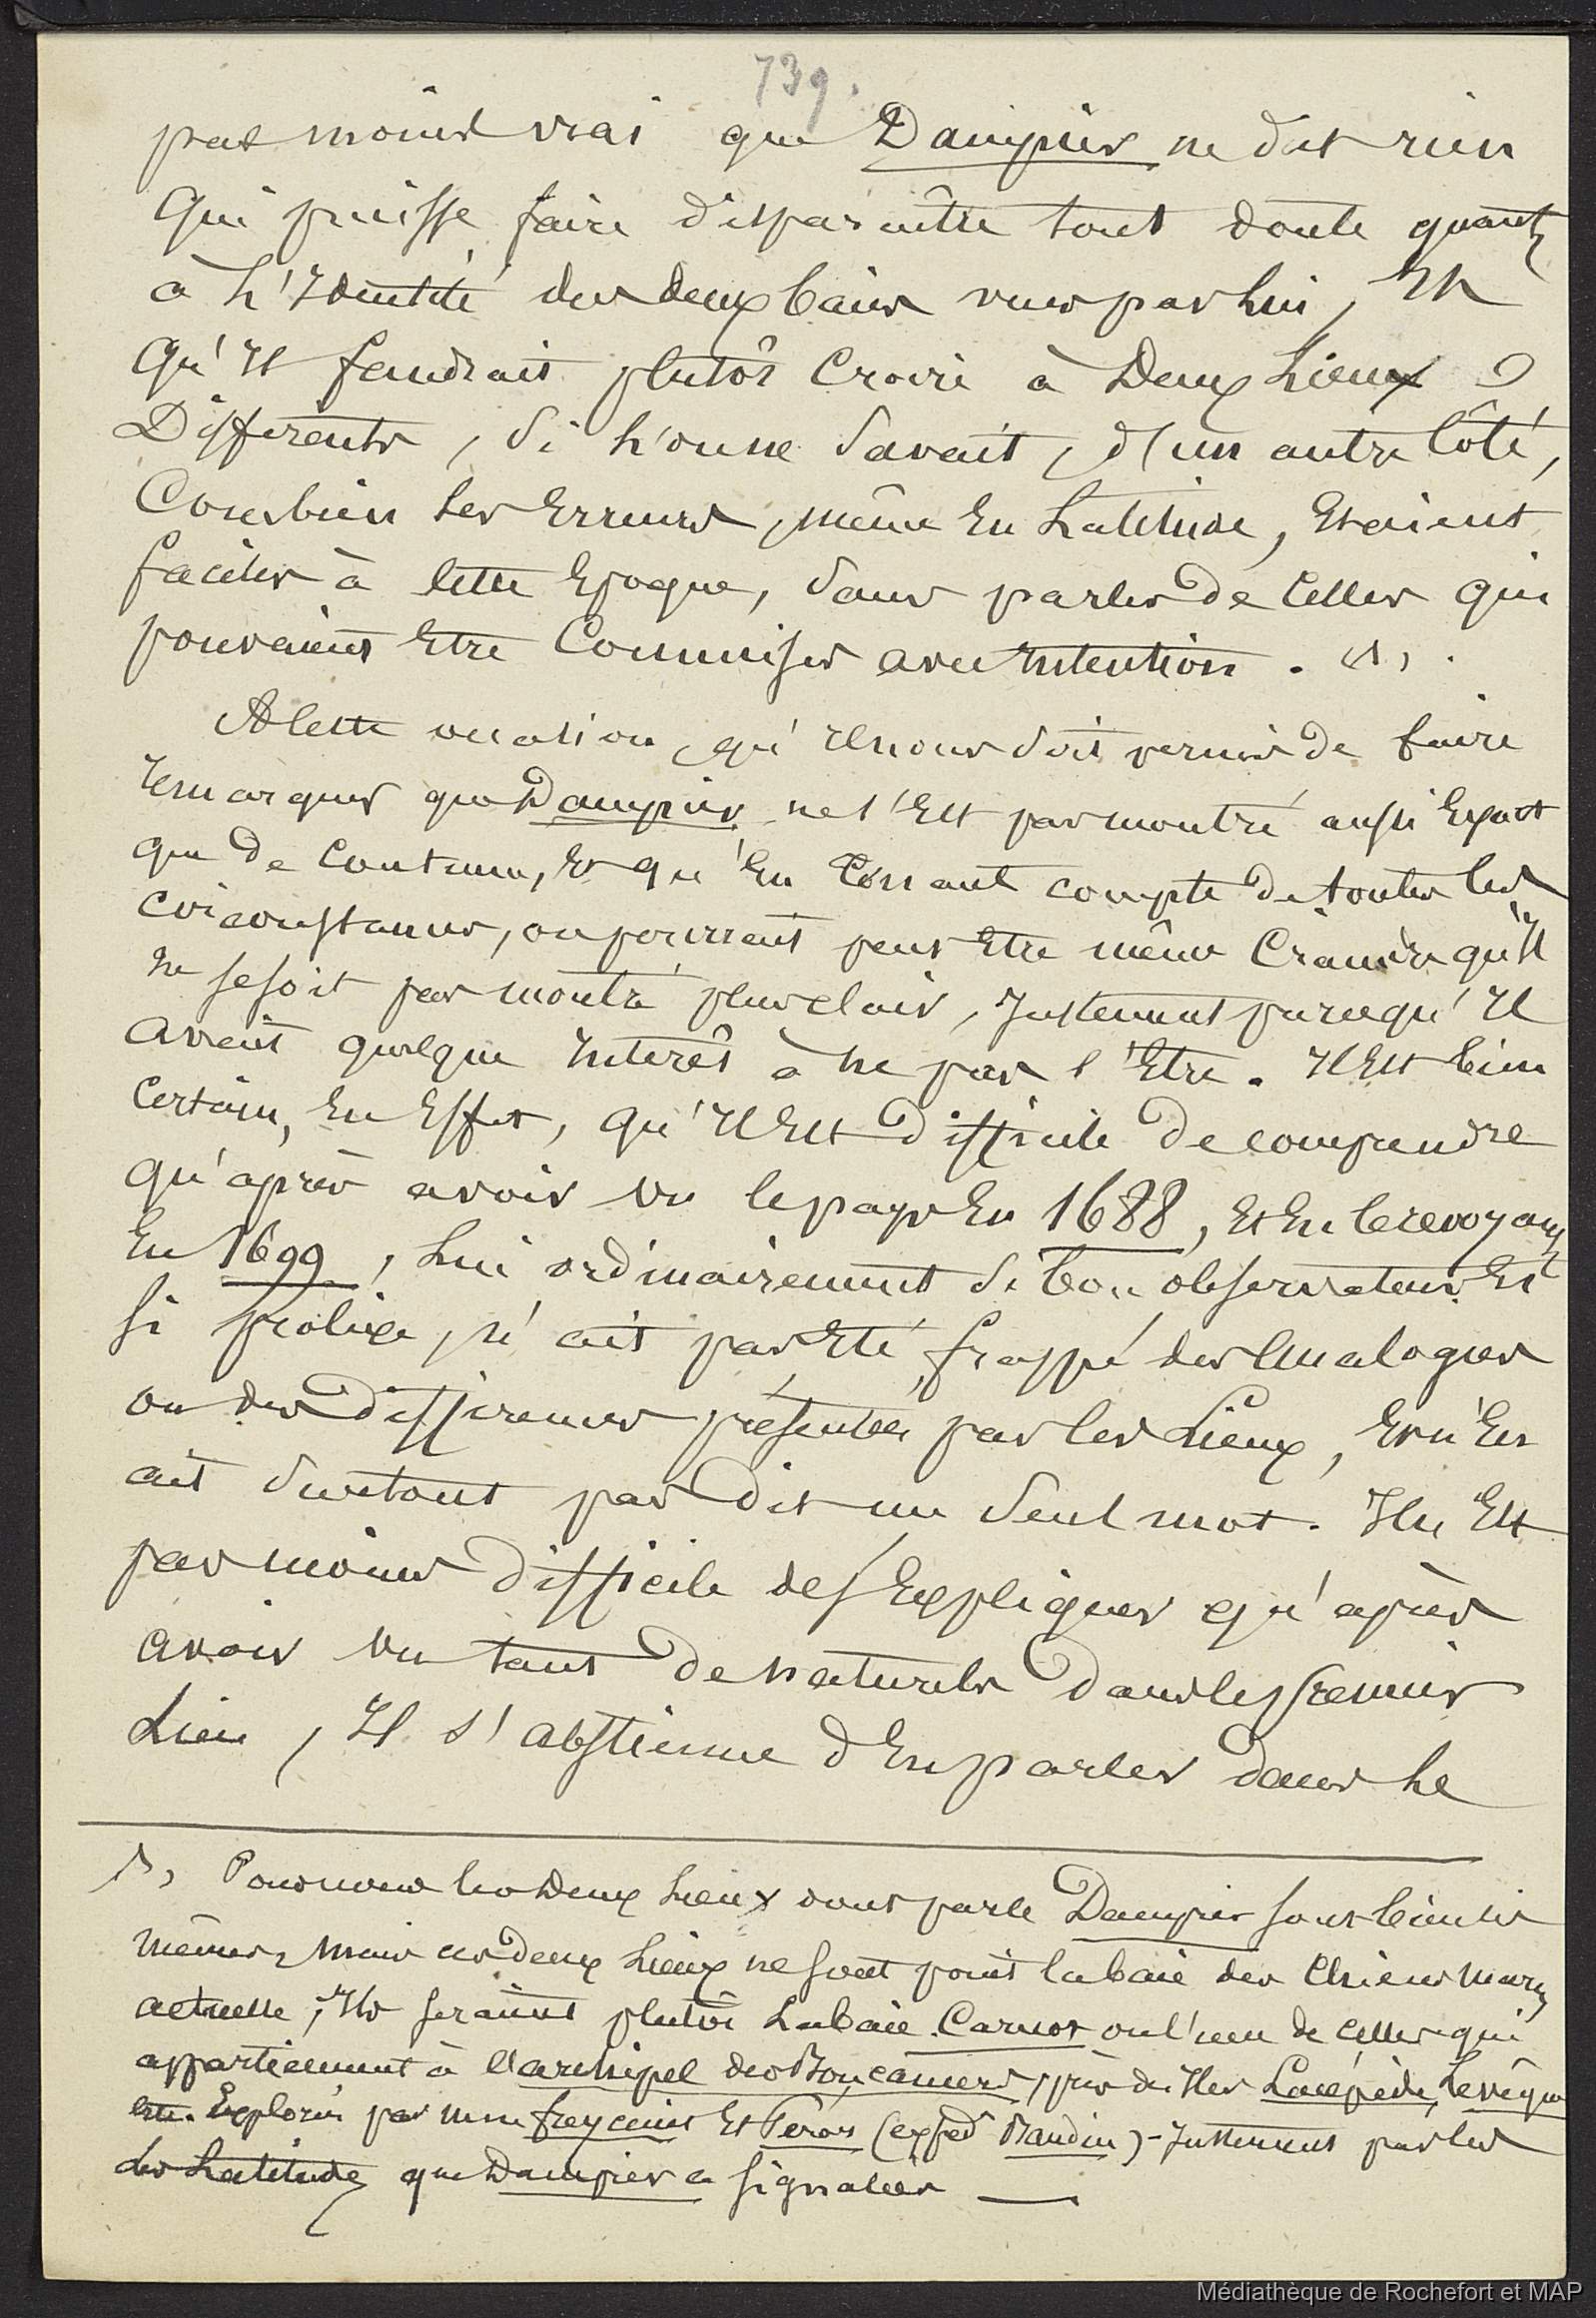 739.
pas moins vrai que Dampier ne dit rien
qui puisse faire disparaître tout doute quant
à l'Identité des deux baies vues par lui, Et
qu'Il faudrait plutôt Croire à Deux Lieux
Différents, si l'on ne savait, d'un autre Côté,
Combien les Erreurs, même En Latitude, Etaient
faciles à cette Epoque, sans parler de Celles qui
pouvaient Etre Commises avec Intention. (1).
A cette occasion, qu'Il nous soit permis de faire
remarquer que Dampier ne s'Est pas montré aussi Exact
que de Coutume, Et qu'En tenant compte de toutes les
circonstances, on pourrait peut Etre même Craindre qu'Il
ne se soit pas montré plus clair, Justement parcequ'Il
avait quelque Intérêt à ne pas l'Etre. Il Est bien
Certain, En Effet, qu'Il Est difficile de comprendre
qu'après avoir vu le pays En 1688, Et En le revoyant
En 1699, lui ordinairement si bon observateur Et
si prolixe, n'ait pas Eté frappé des Analogies
ou des Différences présentées par les Lieux, Et n'En
ait surtout pas Dit un seul mot. Il n'Est
pas moins Difficile de s'Expliquer qu'après
avoir vu tant de naturels dans le premier
Lieu, Il s'abstienne d'En parler dans le
(1), Pour nous les Deux Lieux dont parle Dampier sont bien les
mêmes, mais ces deux Lieux ne sont point la baie des Chiens Marins
actuelle; Ils seraient plutôt La baie Carnot ou l'une de celles qui
appartiennent à l'archipel des Boucaniers, près des Iles Lacépède, Levêque
etc. Explorés par MM. freycinet Et Péron (expéd. Baudin) - Justement par les
des Latitudes que Dampier a signalées —
Médiathèque de Rochefort et MAP